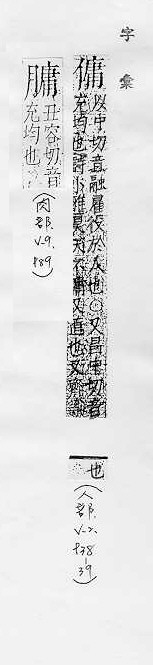 字彙
傭 以中切音融雇役於人也○又昌中切音
充均也詩小雅昊天不傭又直也又
也
(人部.
V-2.
138
-39)
𦟛 丑容切音
充均也
(肉部.
V-9.
189)